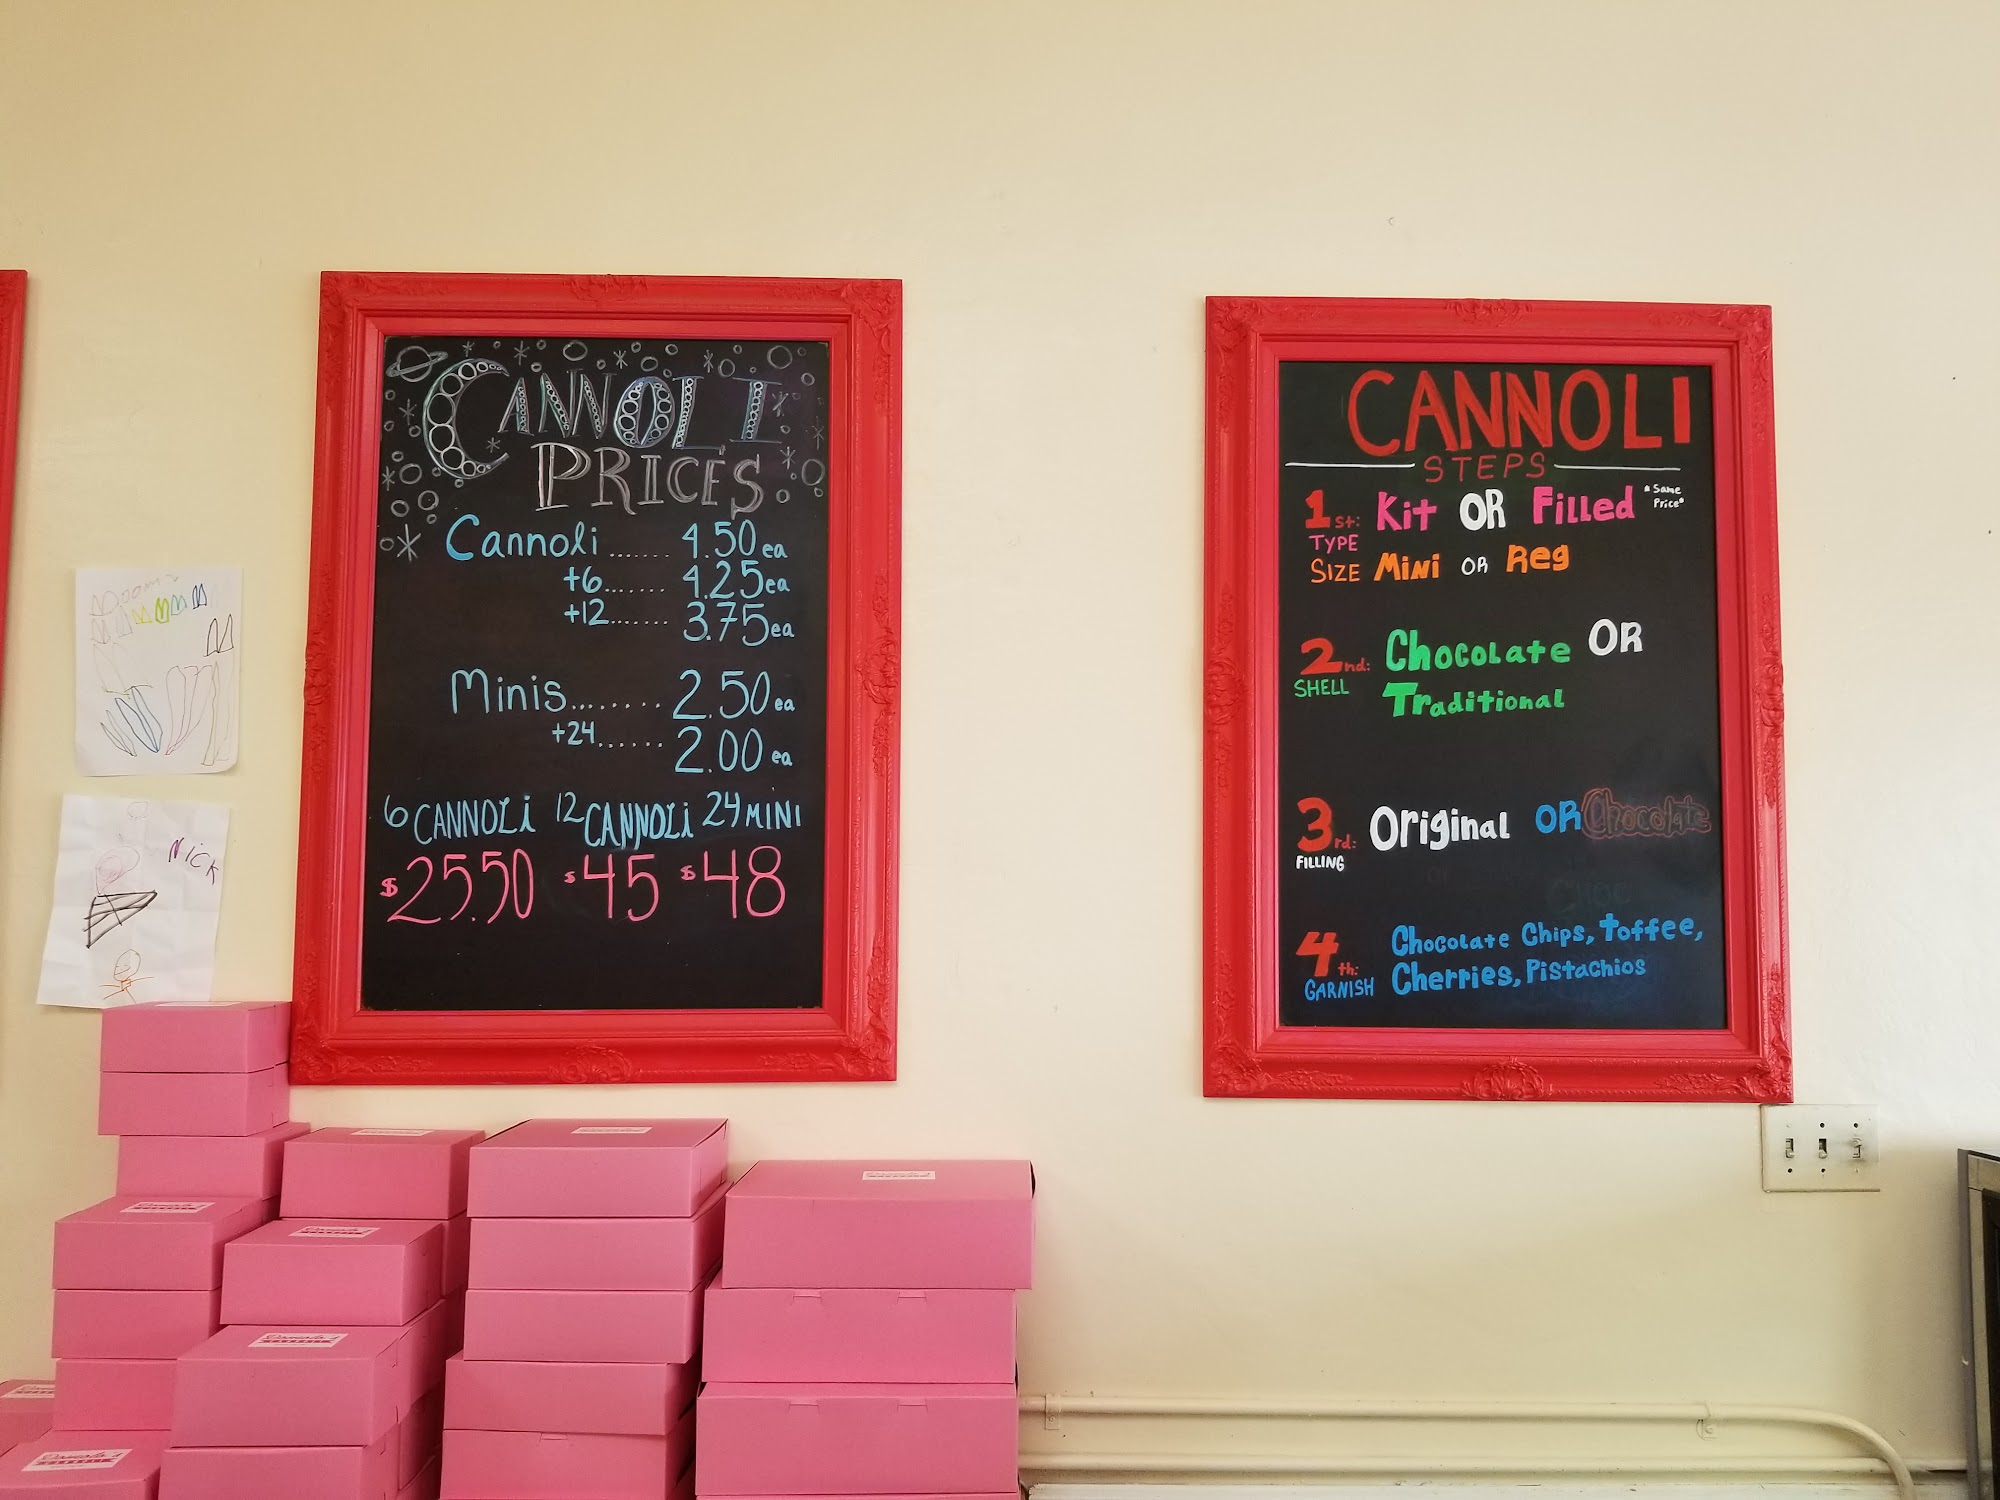 CANNOLI
PRICES
Cannoli ....... 4.50 ea
+6....... 4.25ea
+12....... 3.75ea
Minis........ 2.50 ea
+24...... 2.00 ea
6 CANNOLi 12 CANNOLi 24 MINI
$25.50 $45 $48
CANNOLI
STEPS
1st: Kit OR Filled *Same Price*
TYPE
SIZE MiNi OR Reg
2nd: Chocolate OR
SHELL Traditional
3rd: Original OR Chocolate
FILLING
4th: Chocolate Chips, toffee,
GARNISH Cherries, Pistachios
NicK